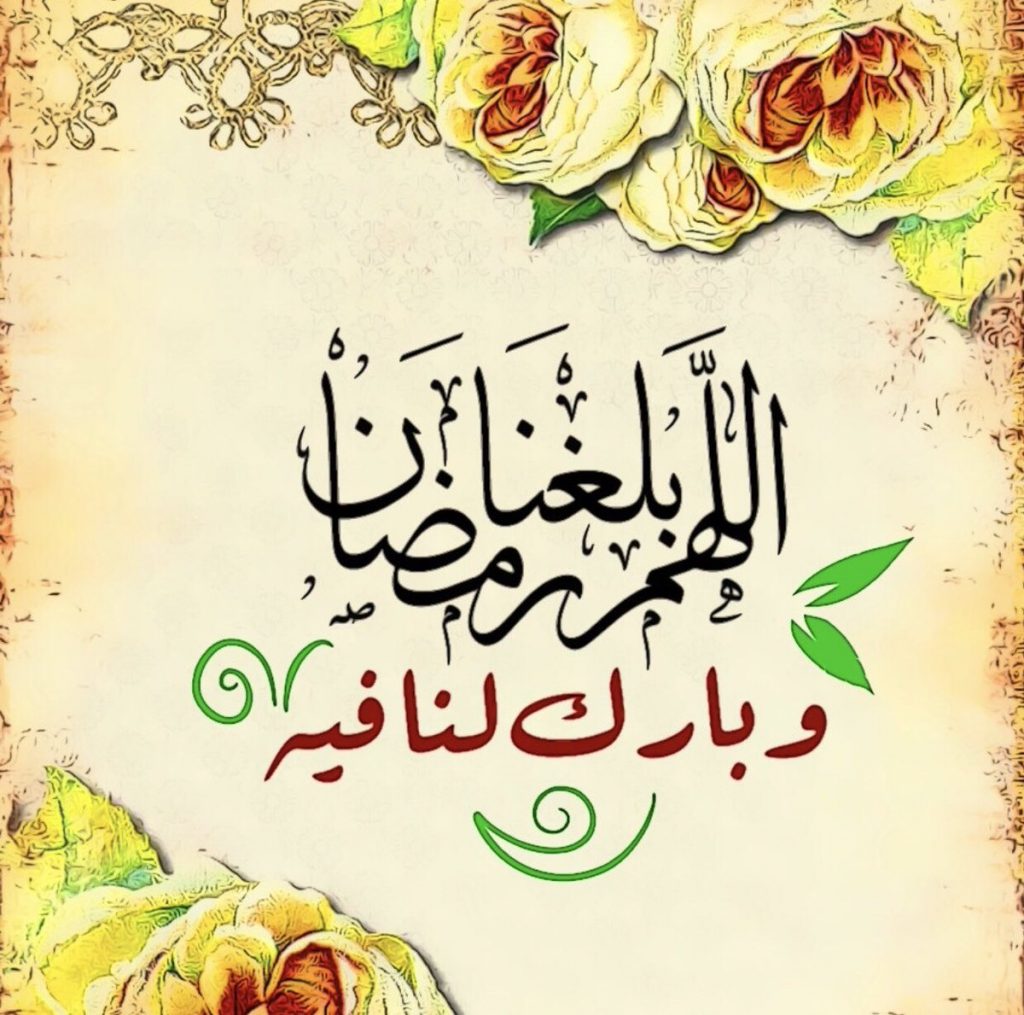 اللَّهم بلغنَا رمضان
وبارك لنا فيه